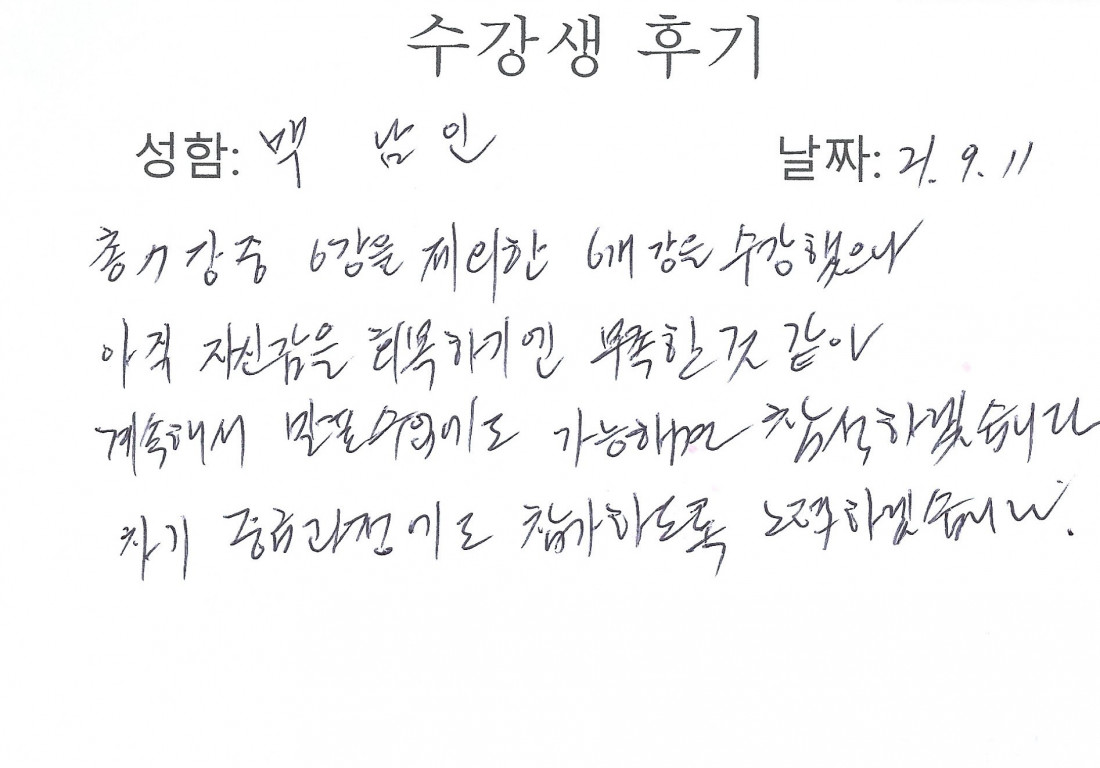 수강생 후기
성함: 백 남 인 날짜: 21. 9. 11
총 7 강 중 6강을 제외한 6개 강을 수강했으나
아직 자신감을 회복하기엔 부족한 것 같아
계속해서 수요에도 가능하면 참석하겠습니다
차기 중급과정에도 참가하도록 노력하겠습니다.